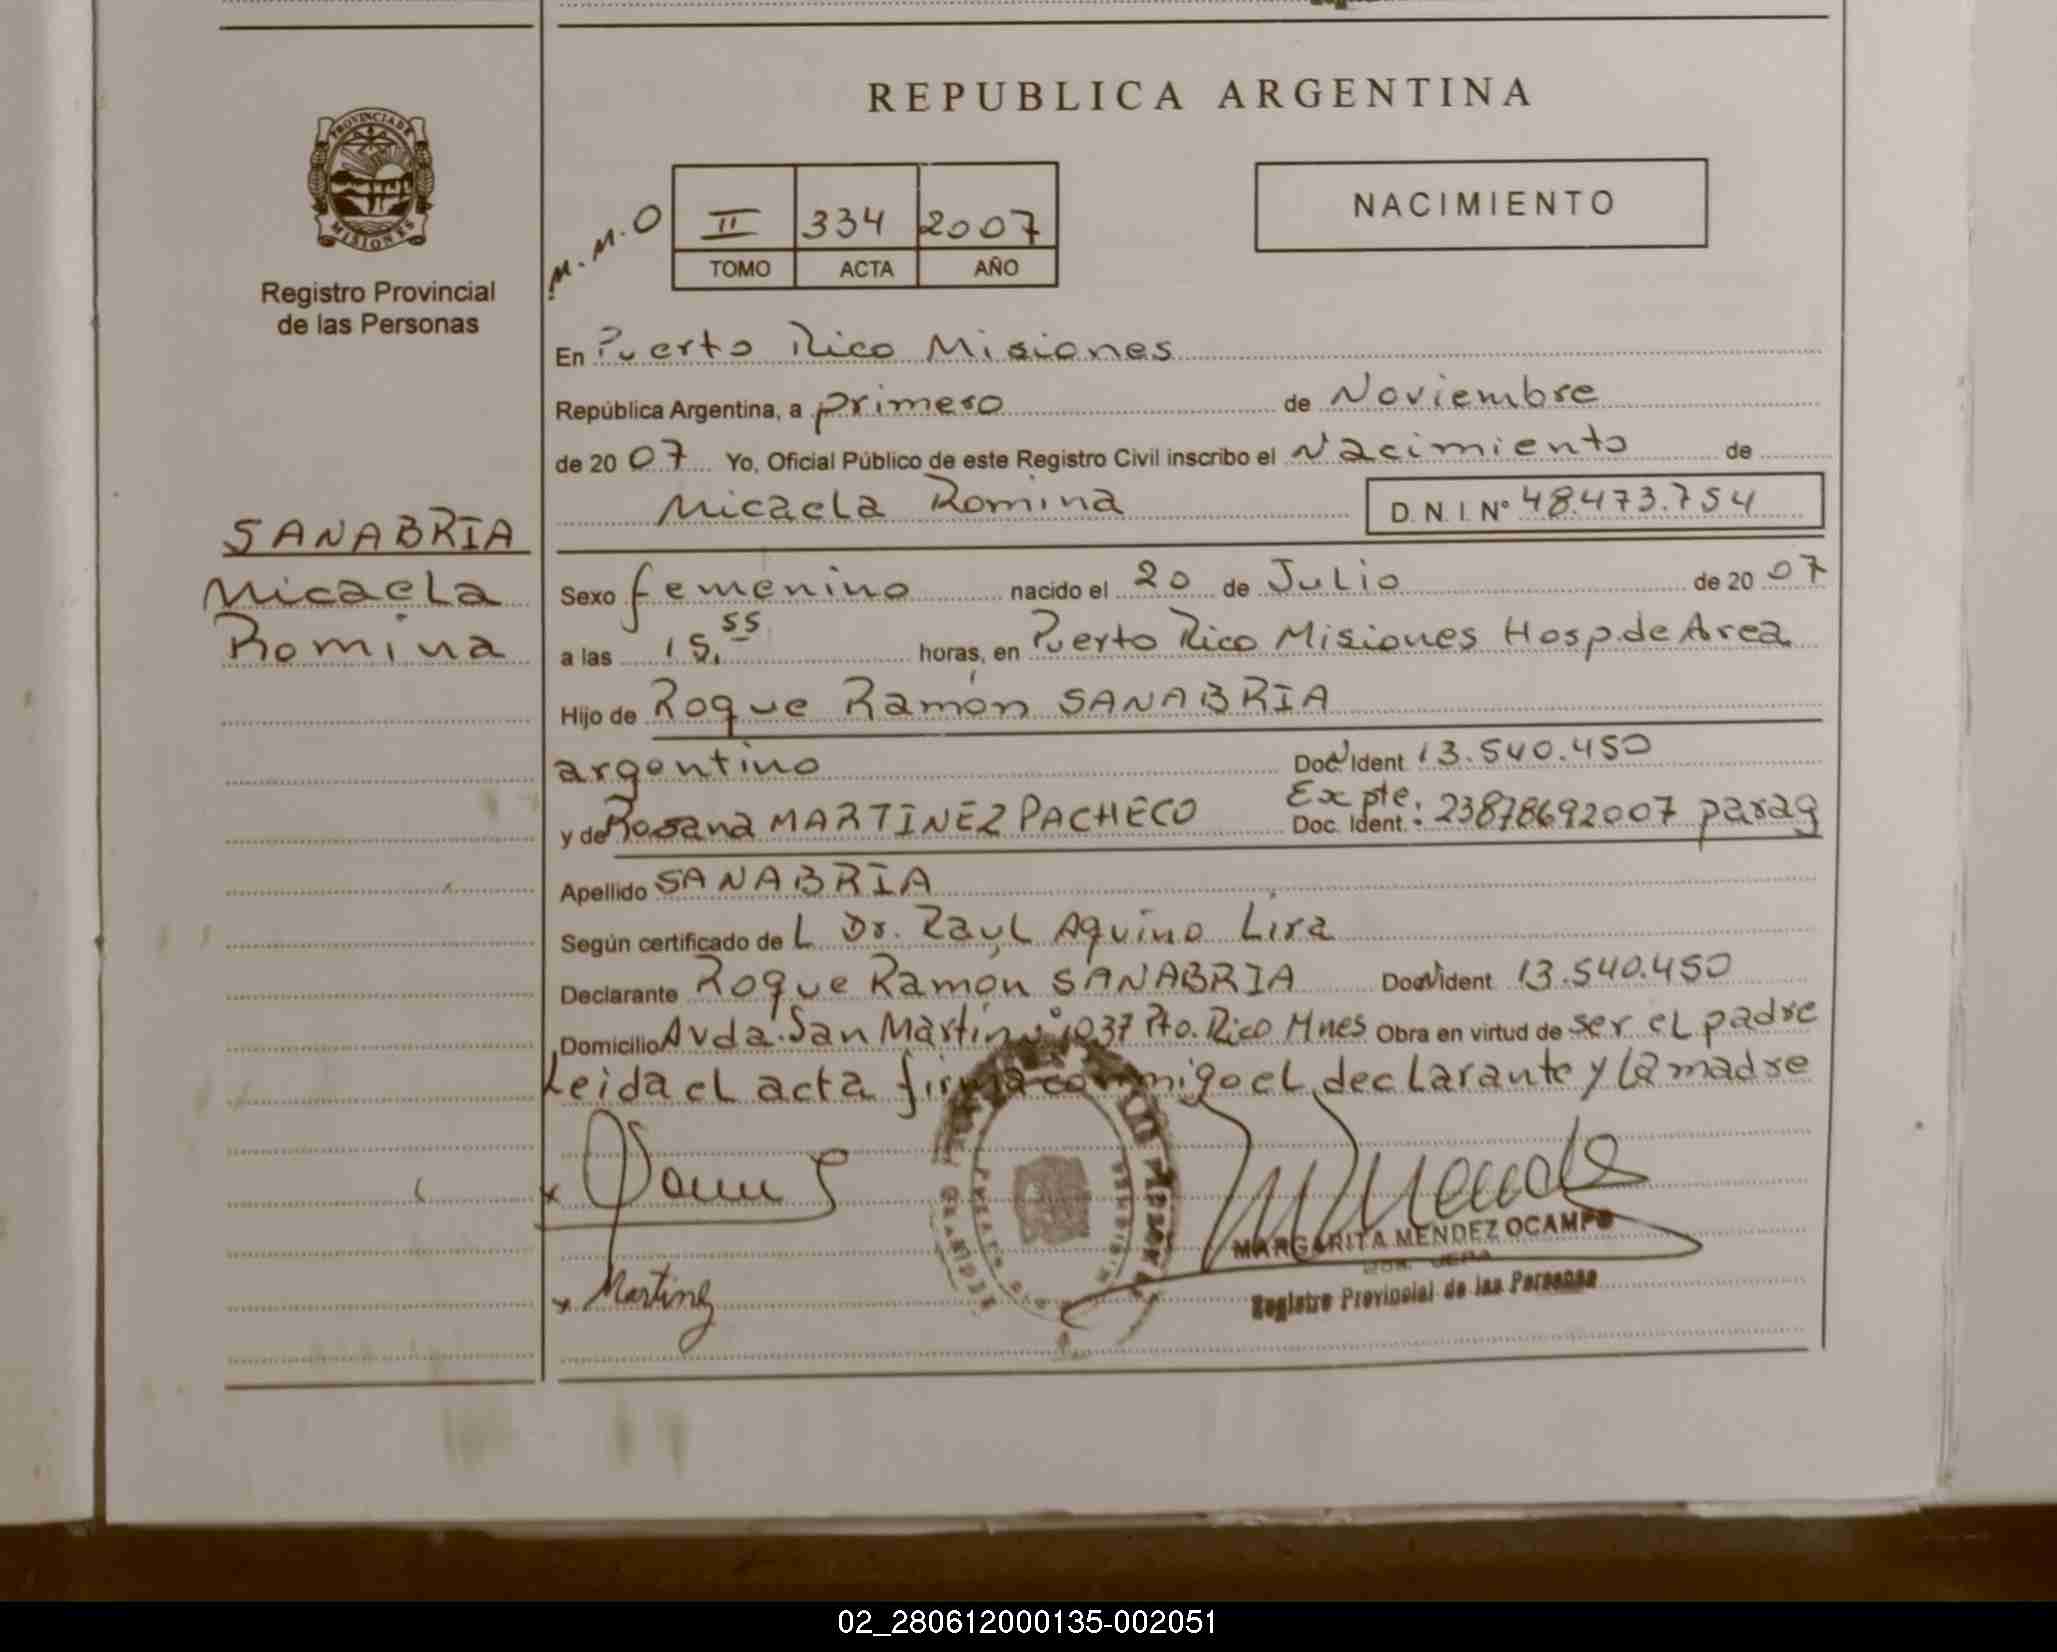 REPUBLICA ARGENTINA
PROVINCIA DE
MISIONES
Registro Provincial
de las Personas
M.M.O
II 334 2007
TOMO ACTA AÑO
NACIMIENTO
En Puerto Rico Misiones
República Argentina, a primero de Noviembre
de 2007 Yo, Oficial Público de este Registro Civil inscribo el Nacimiento de
Micaela Romina D.N.I. Nº 48.473.754
SANABRIA
Micaela
Romina
Sexo femenino nacido el 20 de Julio de 2007
a las 15,55 horas, en Puerto Rico Misiones Hosp. de Area
Hijo de Roque Ramón SANABRIA
argentino Doc. Ident 13.540.450
y de Rosana MARTINEZ PACHECO Expte. Doc. Ident.: 23878692007 parag
Apellido SANABRIA
Según certificado de L Dr. Raul Aquino Lira
Declarante Roque Ramón SANABRIA Doc. Ident 13.540.450
Domicilio Avda. San Martín 1037 Pto. Rico Mnes Obra en virtud de ser el padre
Leida el acta firma conmigo el declarante y la madre
x
x Martinez
MARGARITA MENDEZ OCAMPO
Registro Provincial de las Personas
02_280612000135-002051